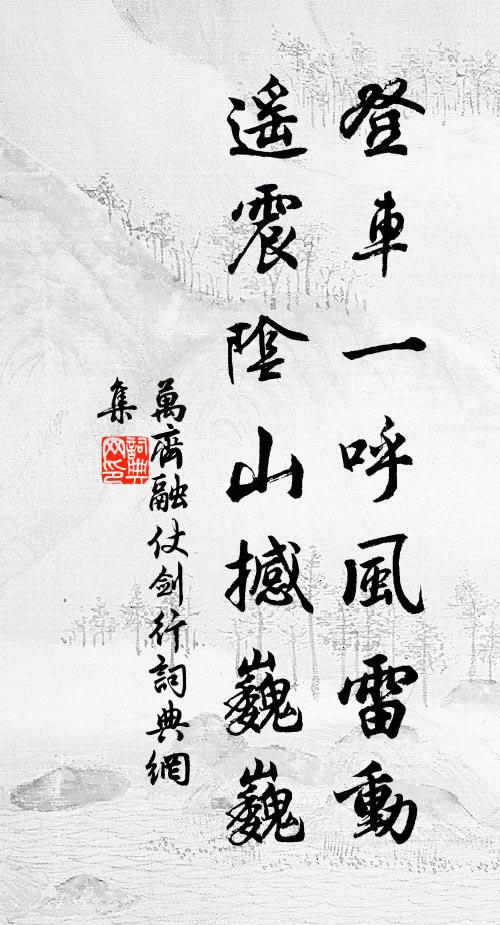 登車一呼風雷動
遥震陰山撼巍巍
萬齊融仗劍行詞典網
集
詞典
网印